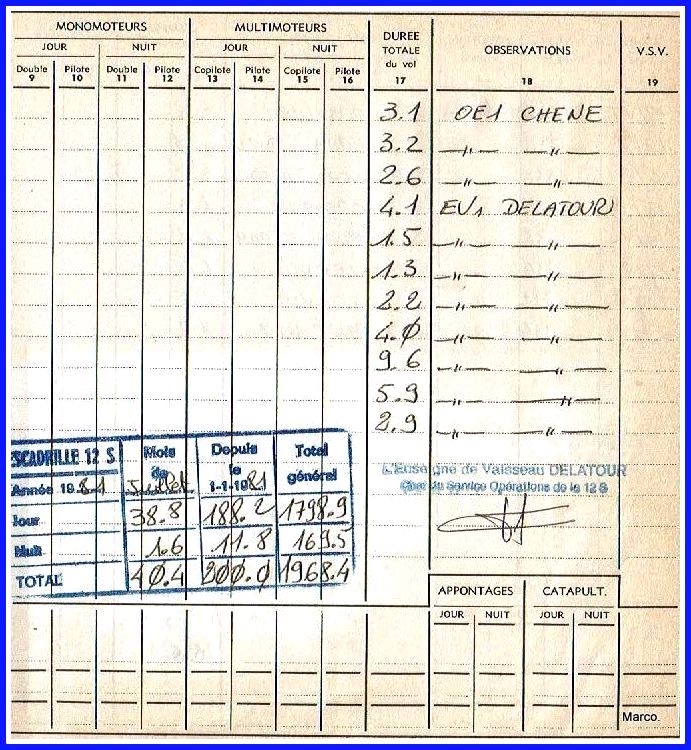 MONOMOTEURS MULTIMOTEURS DUREE TOTALE du vol OBSERVATIONS V.S.V.
JOUR NUIT JOUR NUIT
Double Pilote Double Pilote Copilote Pilote Copilote Pilote
9 10 11 12 13 14 15 16 17 18 19
3.1 OE1 CHENE
3.2 —〃— —〃—
2.6 —〃— —〃—
4.1 EV1 DELATOUR
1.5 —〃— —〃—
1.3 —〃— —〃—
2.2 —〃— —〃—
4.0 —〃— —〃—
9.6 —〃— —〃—
5.9 —〃— —〃—
2.9 —〃— —〃—
ESCADRILLE 12 S Mois de Depuis le Total général
Année 1981 Juillet 1-1-1981
Jour 38.8 188.2 1798.9
Nuit 1.6 11.8 169.5
TOTAL 40.4 200.0 1968.4
L'Enseigne de Vaisseau DELATOUR
Chef du Service Opérations de la 12 S
APPONTAGES CATAPULT.
JOUR NUIT JOUR NUIT
Marco.